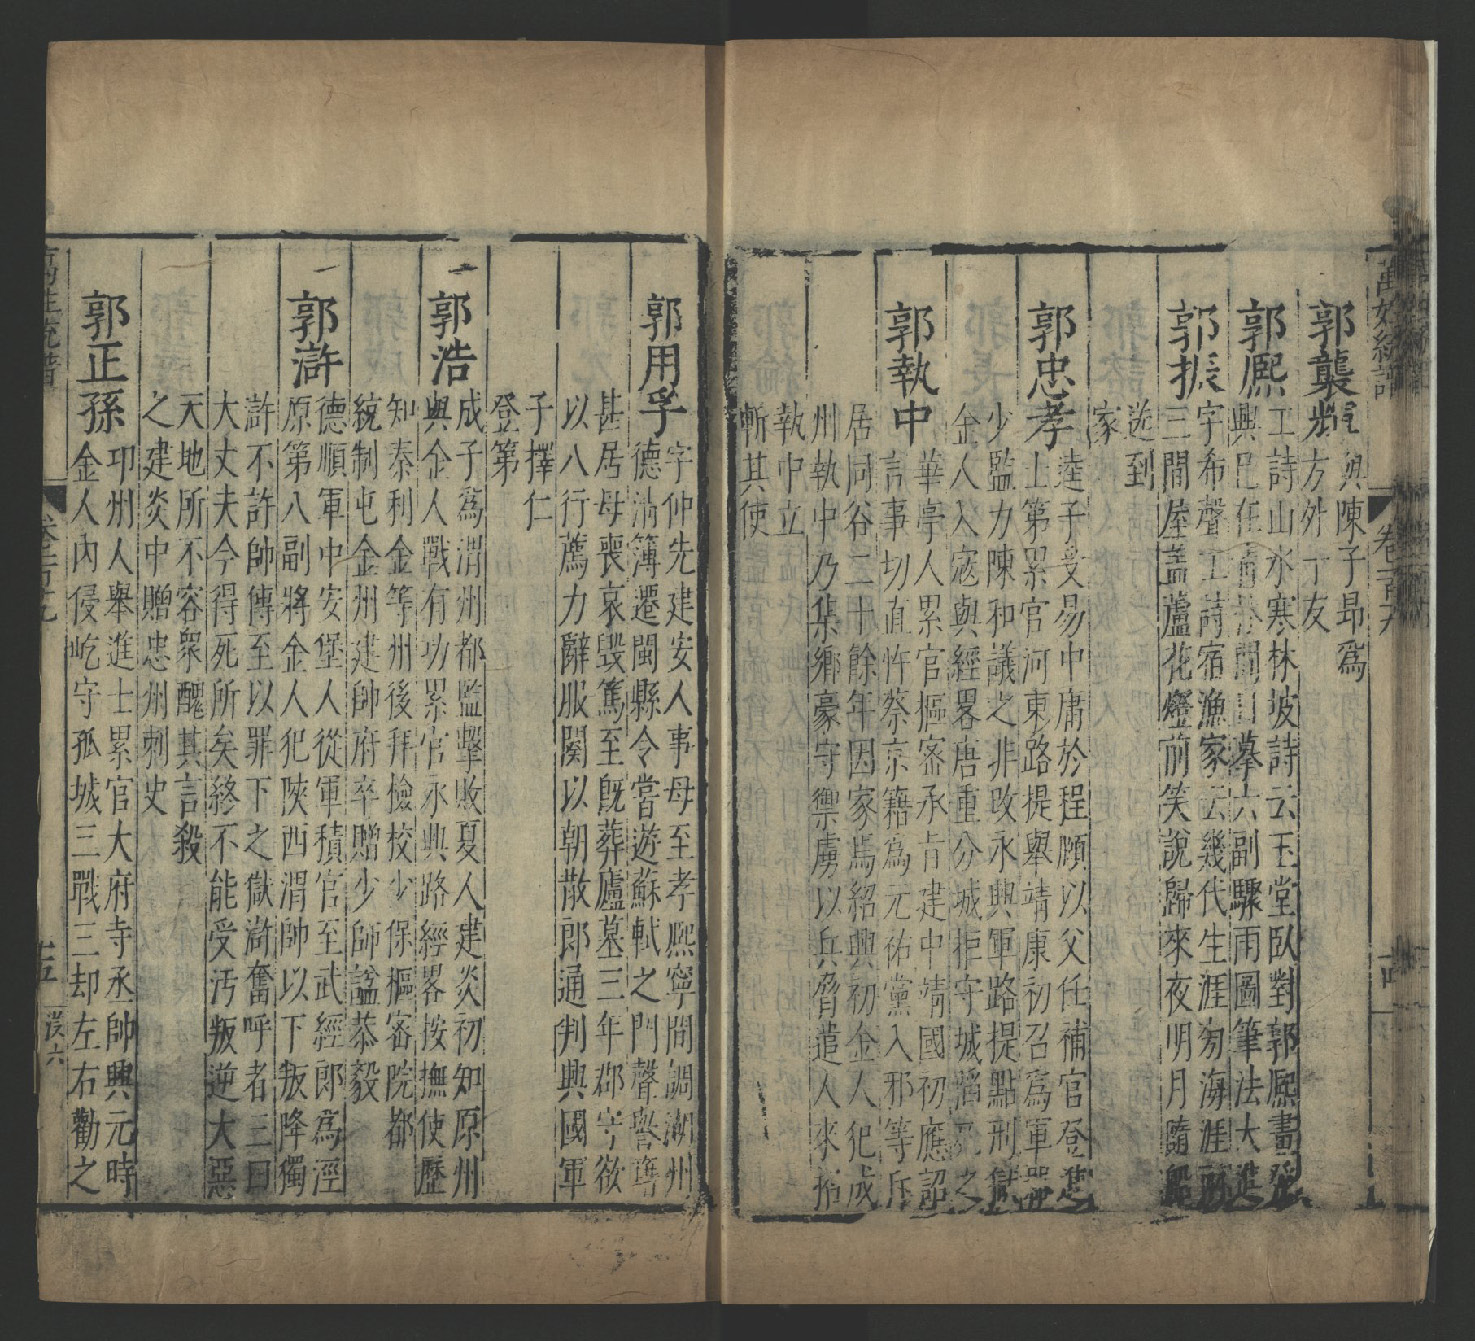 萬姓統譜 卷一百十九 十四
郭襲 與陳子昂爲
方外十友
郭熈 工詩山水寒林坡詩云玉堂臥對郭熈畫發
興已在青林間 六副驟雨圖筆法大進
郭振 字希聲工詩宿漁家云幾代生涯匆海涯
三間屋蓋蘆花燈前笑說歸來夜明月隨船
送到
家
郭忠孝 逵子受易中庸於程頤以父任補官登進
士第累官河東路提舉靖康初召爲軍器
少監力陳和議之非改永興軍路提點刑獄
金人入寇與經畧唐重分城拒守城陷死之
郭執中 華亭人累官樞密承㫖建中靖國初應詔
言事切直忤蔡京籍爲元祐黨入邪等斥
居同谷二十餘年因家焉紹興初金人犯成
州執中乃集鄉豪守禦虜以兵脅遣人來招
執中立
斬其使
郭用孚 字仲先建安人事母至孝熈寧間調湖州
德清簿遷閩縣令嘗遊蘇軾之門聲譽
甚居母喪哀毀篤至旣葬廬墓三年郡守欲
以八行薦力辭服闋以朝散郎通判興國軍
子擇仁
登第
郭浩 成子爲渭州都監擊敗夏人建炎初知原州
與金人戰有功累官永興路經畧按撫使歷
知秦利金等州後拜檢校少保樞密院都
統制屯金州建帥府卒贈少師諡恭毅
郭滸 德順軍中安堡人從軍積官至武經郎爲涇
原第八副將金人犯陝西渭帥以下叛降獨
滸不許帥傳至以罪下之獄滸奮呼者三曰
大丈夫今得死所矣終不能受汚叛逆大惡
天地所不容衆醜其言殺
之建炎中贈忠州刺史
郭正孫 卭州人舉進士累官大府寺丞帥興元時
金人內侵屹守孤城三戰三却左右勸之
萬姓統譜 卷一百十九 十五